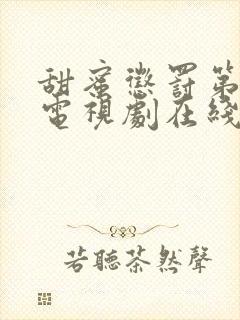 甜蜜懲罰第
電視劇在綫
若聽茶然聲